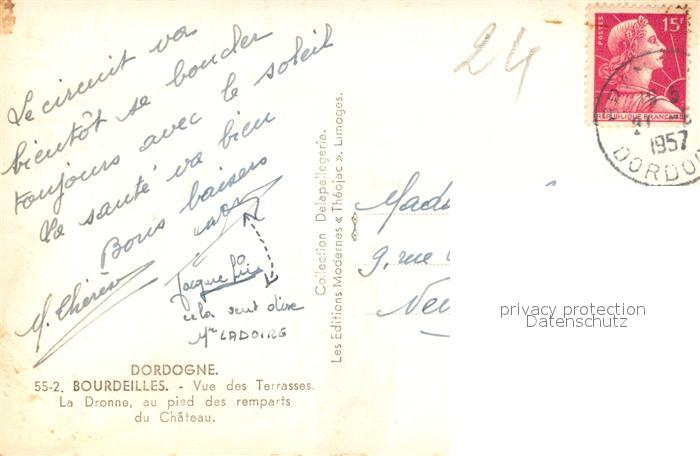 Le circuit va
bientôt se boucler
toujours avec le soleil
la santé va bien
Bons baisers
M. Thérèse
Jacque
cela veut dire
Mr LADOIRE
DORDOGNE.
55-2. BOURDEILLES. - Vue des Terrasses.
La Dronne, au pied des remparts
du Château.
Collection Delapellegerie.
Les Editions Modernes « Théojac », Limoges.
24
POSTES
15F
REPUBLIQUE FRANCAISE
1957
DORDO
Mad
9, rue
Neu
privacy protection
Datenschutz